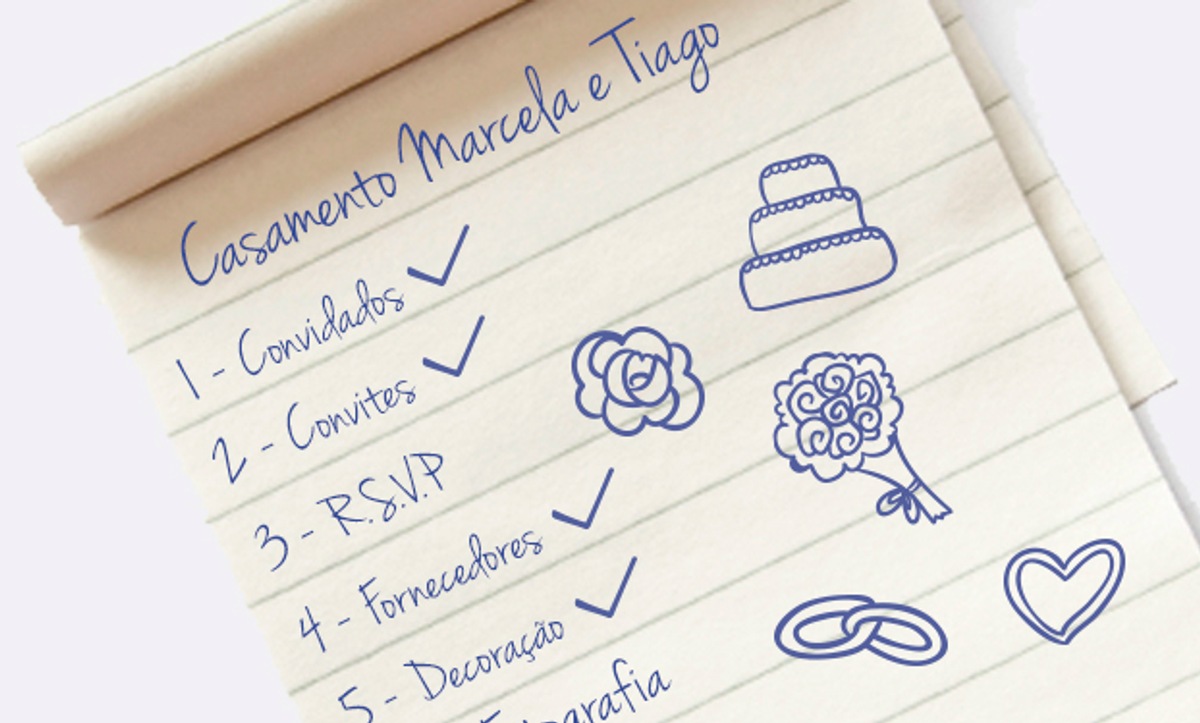 Casamento Marcela e Tiago
1 - Convidados ✓
2 - Convites ✓
3 - R.S.V.P
4 - Fornecedores ✓
5 - Decoração ✓